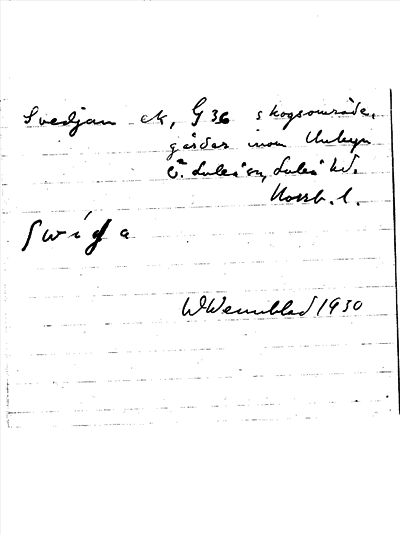 Svedjan ek, G 36 skogsområde,
gårdar inom Unbyn
Ö. Luleå sn, Luleå hd.
Norrb. l.
Swíǥa
W Wennblad 1930